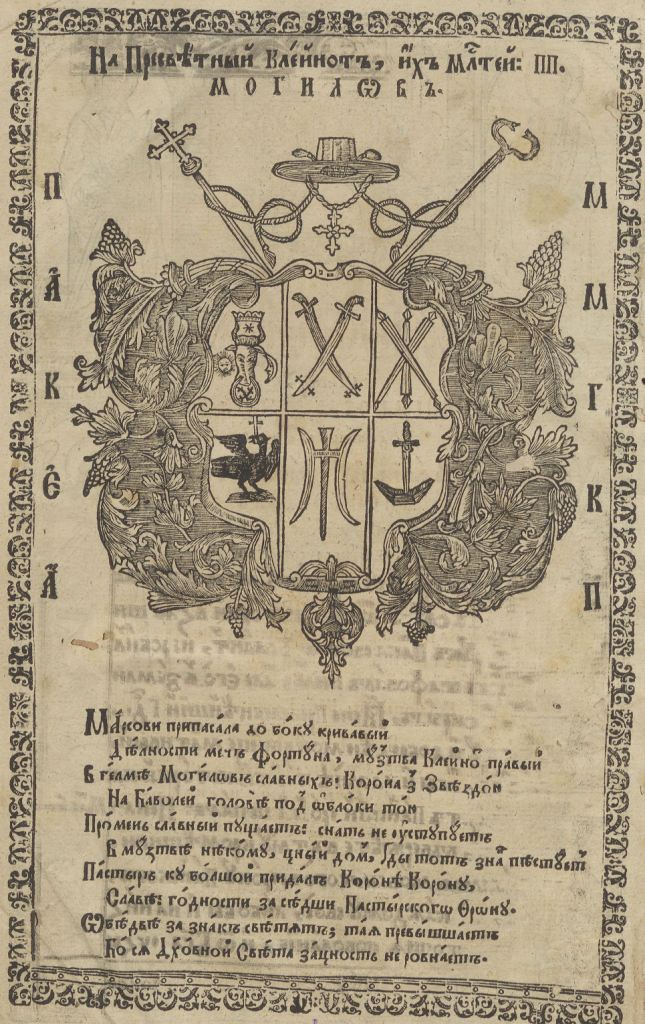 На Пресвѣтный Клейнотъ, и́хъ Мл҃тей: ПП.
МОГИЛѠВЪ.
П М
А М
К Г
Е К
А П
Ма́рсови припаса́ла до бо́ку крива́вый
Дѣ́лности ме́чъ фортѹ́на, мѹ́зтва Клейно́т пра́вый
В ге́лмѣ Моги́ловъ сла́вныхъ: Коро́на з̾ Звѣздо́ю
На Ба́волей голо́вѣ под̾ ѡ҆́блоки то́ю
Про́мень сла́вный пѹща́етъ: зна́ть не ѹ҆стѹпѹ́етъ
В мѹ́зтвѣ нѣко́мѹ, цны́й до́м, кгды́ то́тъ зна́к пѣстѹ́етъ
Па́стыръ кѹ бо́лшой прида́лъ Коро́нѣ Коро́нѹ,
Сла́вѣ: го́дности за сѣ́дши Па́стырскогѡ Ѳро́нѹ.
Ѡбѣ́двѣ за зна́къ свѣ́тятъ; та́я превы́шшаетъ
Бо́ ся Дх҃о́вной Свѣ́та за́цность не ровна́етъ.